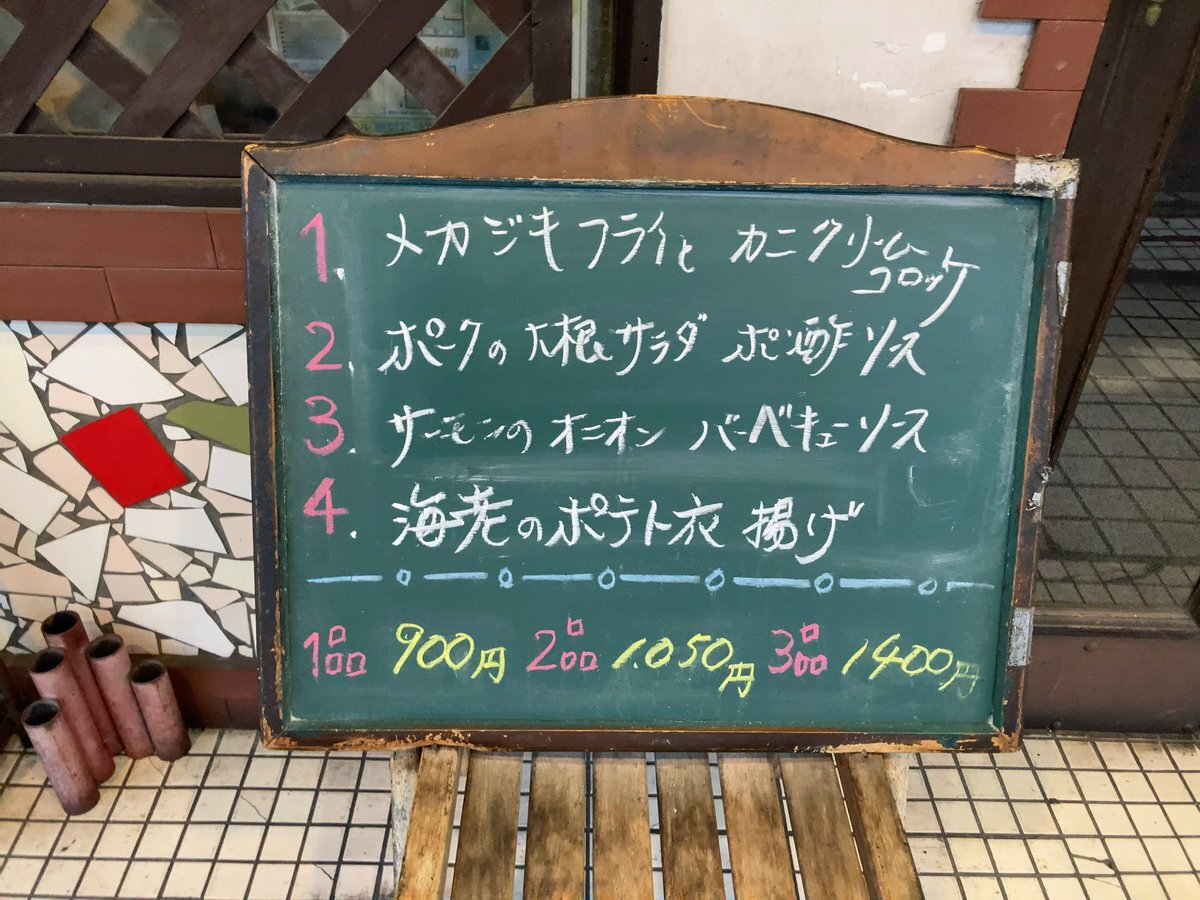 1. メカジキフライと カニクリーム
コロッケ
2. ポークの大根サラダ ポン酢ソース
3. サーモンのオニオン バーベキューソース
4. 海老のポテト衣 揚げ
1品 900円 2品 1.050円 3品 1400円